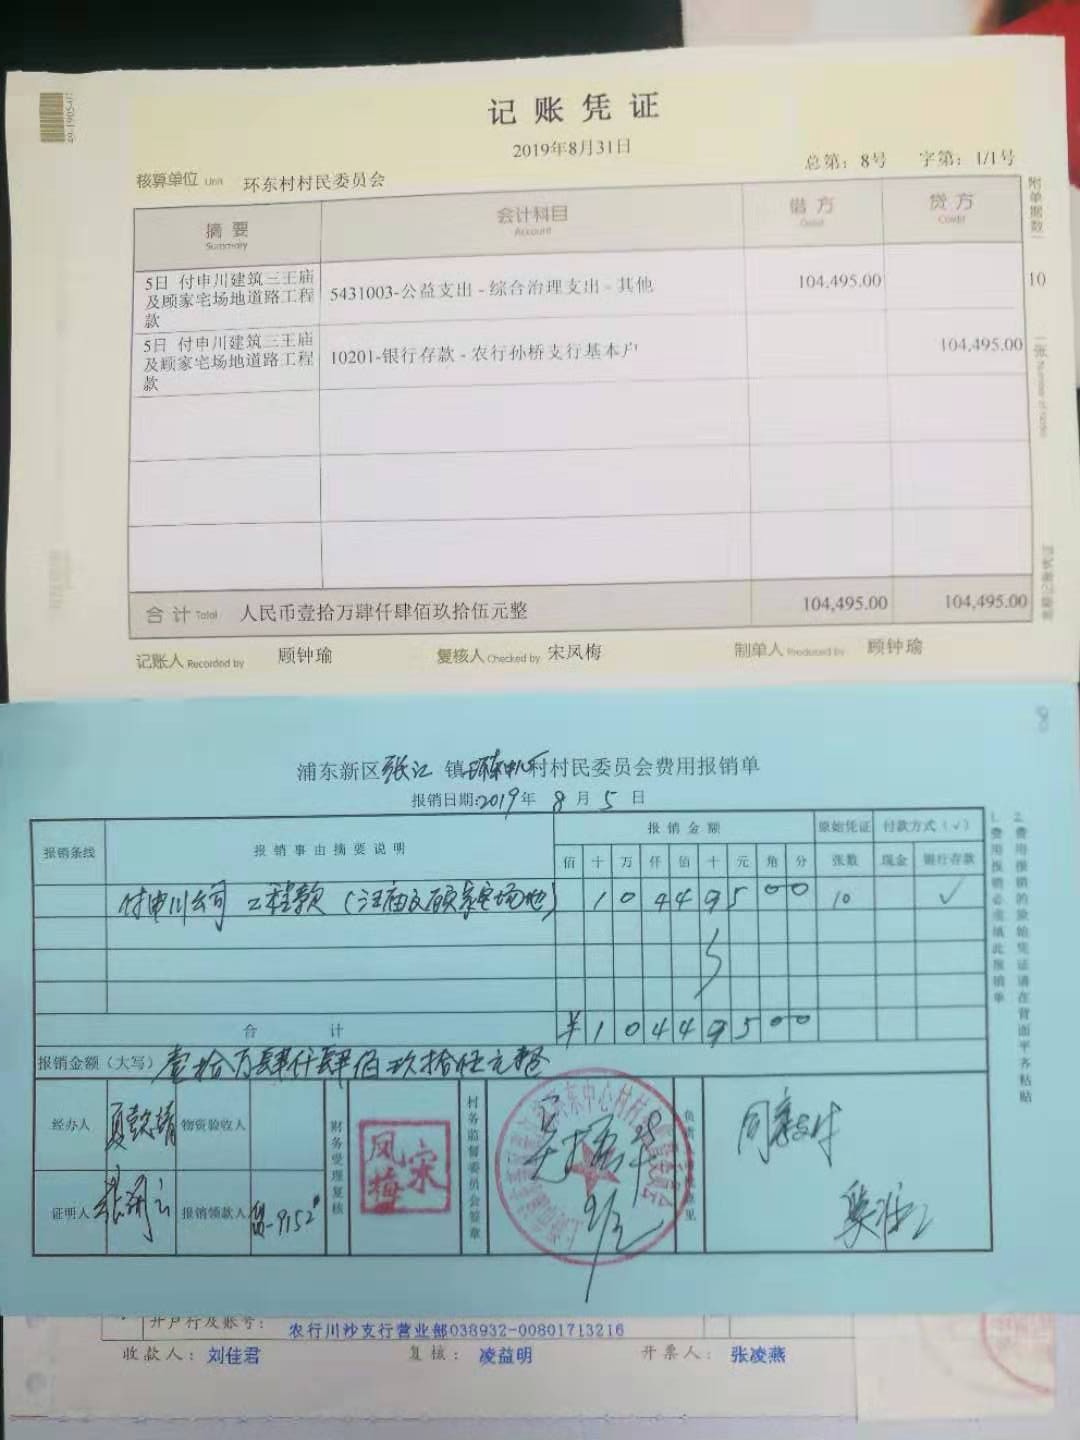 记账凭证
2019年8月31日
总第：8号 字第：1/1号
核算单位 Unit 环东村村民委员会
附单据数 10 张
摘要 Summary 会计科目 Account 借方 Debit 贷方 Credit
5日 付申川建筑三王庙及顾家宅场地道路工程款 5431003-公益支出-综合治理支出-其他 104,495.00
5日 付申川建筑三王庙及顾家宅场地道路工程款 10201-银行存款-农行孙桥支行基本户 104,495.00
合计 Total 人民币壹拾万肆仟肆佰玖拾伍元整 104,495.00 104,495.00
记账人 Recorded by 顾钟瑜 复核人 Checked by 宋凤梅 制单人 Produced by 顾钟瑜
浦东新区张江镇环东中心村村民委员会费用报销单
报销日期:2019年8月5日
报销条线 报销事由摘要说明 报销金额 原始凭证 付款方式（√）
佰 十 万 仟 佰 十 元 角 分 张数 现金 银行存款
付申川公司 工程款 104495 00 10 √
合计 ¥104495 00
报销金额（大写）壹拾万肆仟肆佰玖拾伍元整
经办人 物资验收人
证明人 报销领款人
财务受理复核
宋凤梅
村务监督委员会签章
同意支付
1.费用报销必须填此报销单
2.费用报销的原始凭证请在背面平齐粘贴
开户行及账号： 农行川沙支行营业部038932-00801713216
收款人： 刘佳君 复核： 凌益明 开票人： 张凌燕